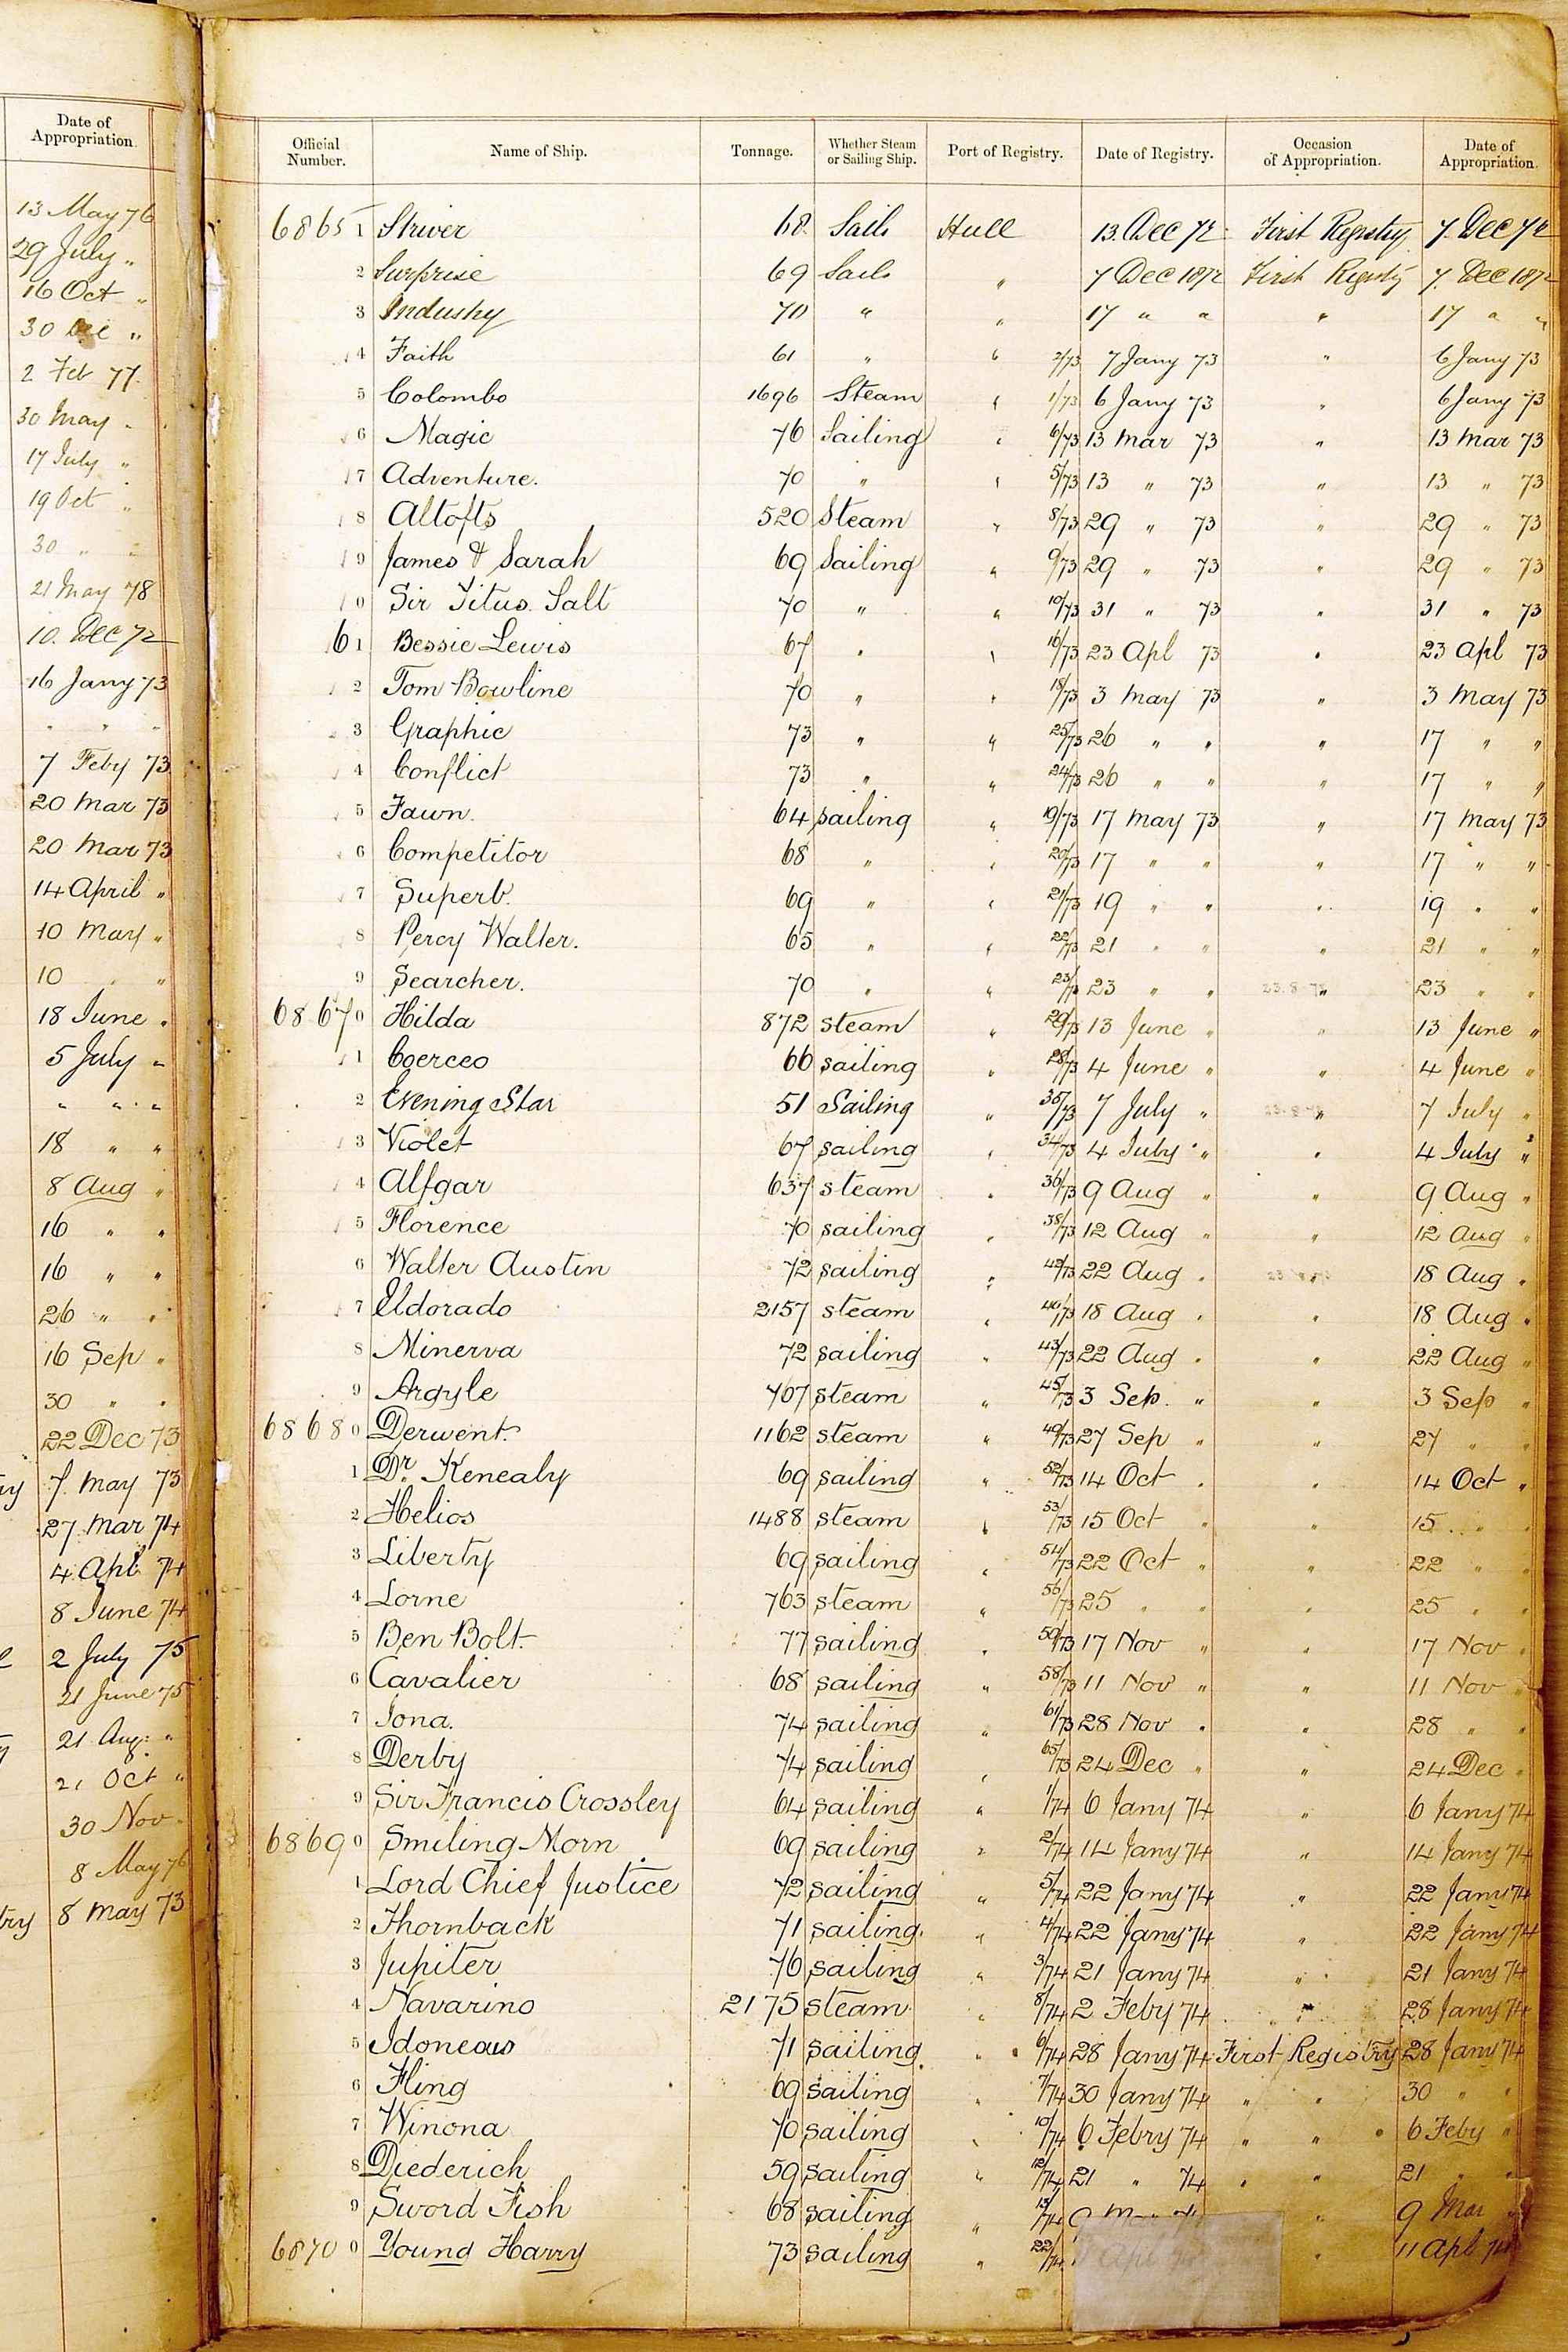 Date of Appropriation.
13 May 76
29 July "
16 Oct "
30 Dec "
2 Feb 77
30 May "
17 July "
19 Oct "
30 " "
21 May 78
10. Dec 72
16 Jany 73
" " "
7 Feby 73
20 Mar 73
20 Mar 73
14 April "
10 May "
10 " "
18 June "
5 July "
" " "
18 " "
8 Aug "
16 " "
16 " "
26 " "
16 Sep "
30 " "
22 Dec 73
7 May 73
27 Mar 74
4 Apl 74
8 June 74
2 July 75
21 June 75
21 Aug "
21 Oct "
30 Nov "
8 May 76
8 May 73
Official Number. Name of Ship. Tonnage. Whether Steam or Sailing Ship. Port of Registry. Date of Registry. Occasion of Appropriation. Date of Appropriation.
68651 Striver 68 Sail Hull 13. Dec 72 First Registry 7. Dec 72
2 Surprise 69 Sail " 7 Dec 1872 First Registy 7. Dec 1872
3 Industry 70 " " 17 " " " 17 " "
4 Faith 61 " " 2/73 7 Jany 73 " 6 Jany 73
5 Colombo 1696 Steam " 1/73 6 Jany 73 " 6 Jany 73
6 Magic 76 Sailing " 6/73 13 Mar 73 " 13 Mar 73
7 Adventure. 70 " " 5/73 13 " 73 " 13 " 73
8 Altofts 520 Steam " 8/73 29 " 73 " 29 " 73
9 James & Sarah 69 Sailing " 9/73 29 " 73 " 29 " 73
0 Sir Titus Salt 70 " " 10/73 31 " 73 " 31 " 73
61 Bessie Lewis 67 " " 16/73 23 Apl 73 " 23 Apl 73
2 Tom Bowline 70 " " 18/73 3 May 73 " 3 May 73
3 Graphic 73 " " 25/73 26 " " " 17 " "
4 Conflict 73 " " 24/73 26 " " " 17 " "
5 Fawn. 64 sailing " 19/73 17 May 73 " 17 May 73
6 Competitor 68 " " 20/73 17 " " " 17 " "
7 Superb. 69 " " 21/73 19 " " " 19 " "
8 Percy Walter. 65 " " 22/73 21 " " " 21 " "
9 Searcher. 70 " " 23/73 23 " " " 23 " "
68670 Hilda 872 steam " 29/73 13 June " " 13 June "
1 Coerceo 66 sailing " 28/73 4 June " " 4 June "
2 Evening Star 51 Sailing " 35/73 7 July " " 7 July "
3 Violet 67 sailing " 34/73 4 July " " 4 July "
4 Alfgar 637 steam " 36/73 9 Aug " " 9 Aug "
5 Florence 70 sailing " 38/73 12 Aug " " 12 Aug "
6 Walter Austin 72 sailing " 42/73 22 Aug " 18 Aug "
7 Eldorado 2157 steam " 40/73 18 Aug " " 18 Aug "
8 Minerva 72 sailing " 43/73 22 Aug " " 22 Aug "
9 Argyle 707 steam " 45/73 3 Sep. " " 3 Sep "
68680 Derwent. 1162 steam " 49/73 27 Sep " " 27 " "
1 Dr. Kenealy 69 sailing " 52/73 14 Oct " " 14 Oct "
2 Helios 1488 steam " 53/73 15 Oct " " 15 " "
3 Liberty 69 sailing " 54/73 22 Oct " " 22 " "
4 Lorne 763 steam " 56/73 25 " " " 25 " "
5 Ben Bolt. 77 sailing " 59/73 17 Nov " " 17 Nov "
6 Cavalier 68 sailing " 58/73 11 Nov " " 11 Nov "
7 Iona. 74 sailing " 61/73 28 Nov " " 28 " "
8 Derby 74 sailing " 65/73 24 Dec " " 24 Dec "
9 Sir Francis Crossley 64 sailing " 1/74 6 Jany 74 " 6 Jany 74
68690 Smiling Morn 69 sailing " 2/74 14 Jany 74 " 14 Jany 74
1 Lord Chief Justice 72 sailing " 5/74 22 Jany 74 " 22 Jany 74
2 Thornback 71 sailing " 4/74 22 Jany 74 " 22 Jany 74
3 Jupiter 76 sailing " 3/74 21 Jany 74 " 21 Jany 74
4 Navarino 2175 steam " 8/74 2 Feby 74 " 28 Jany 74
5 Idoneous 71 sailing " 6/74 28 Jany 74 First Registry 28 Jany 74
6 Fling 69 sailing " 7/74 30 Jany 74 " " 30 " "
7 Winona 70 sailing " 10/74 6 Febry 74 " " 6 Feby "
8 Diederich 59 sailing " 12/74 21 " 74 " " 21 " "
9 Sword Fish 68 sailing " 15/74 " 9 Mar "
68700 Young Harry 73 sailing " 22/74 " 11 Apl 74